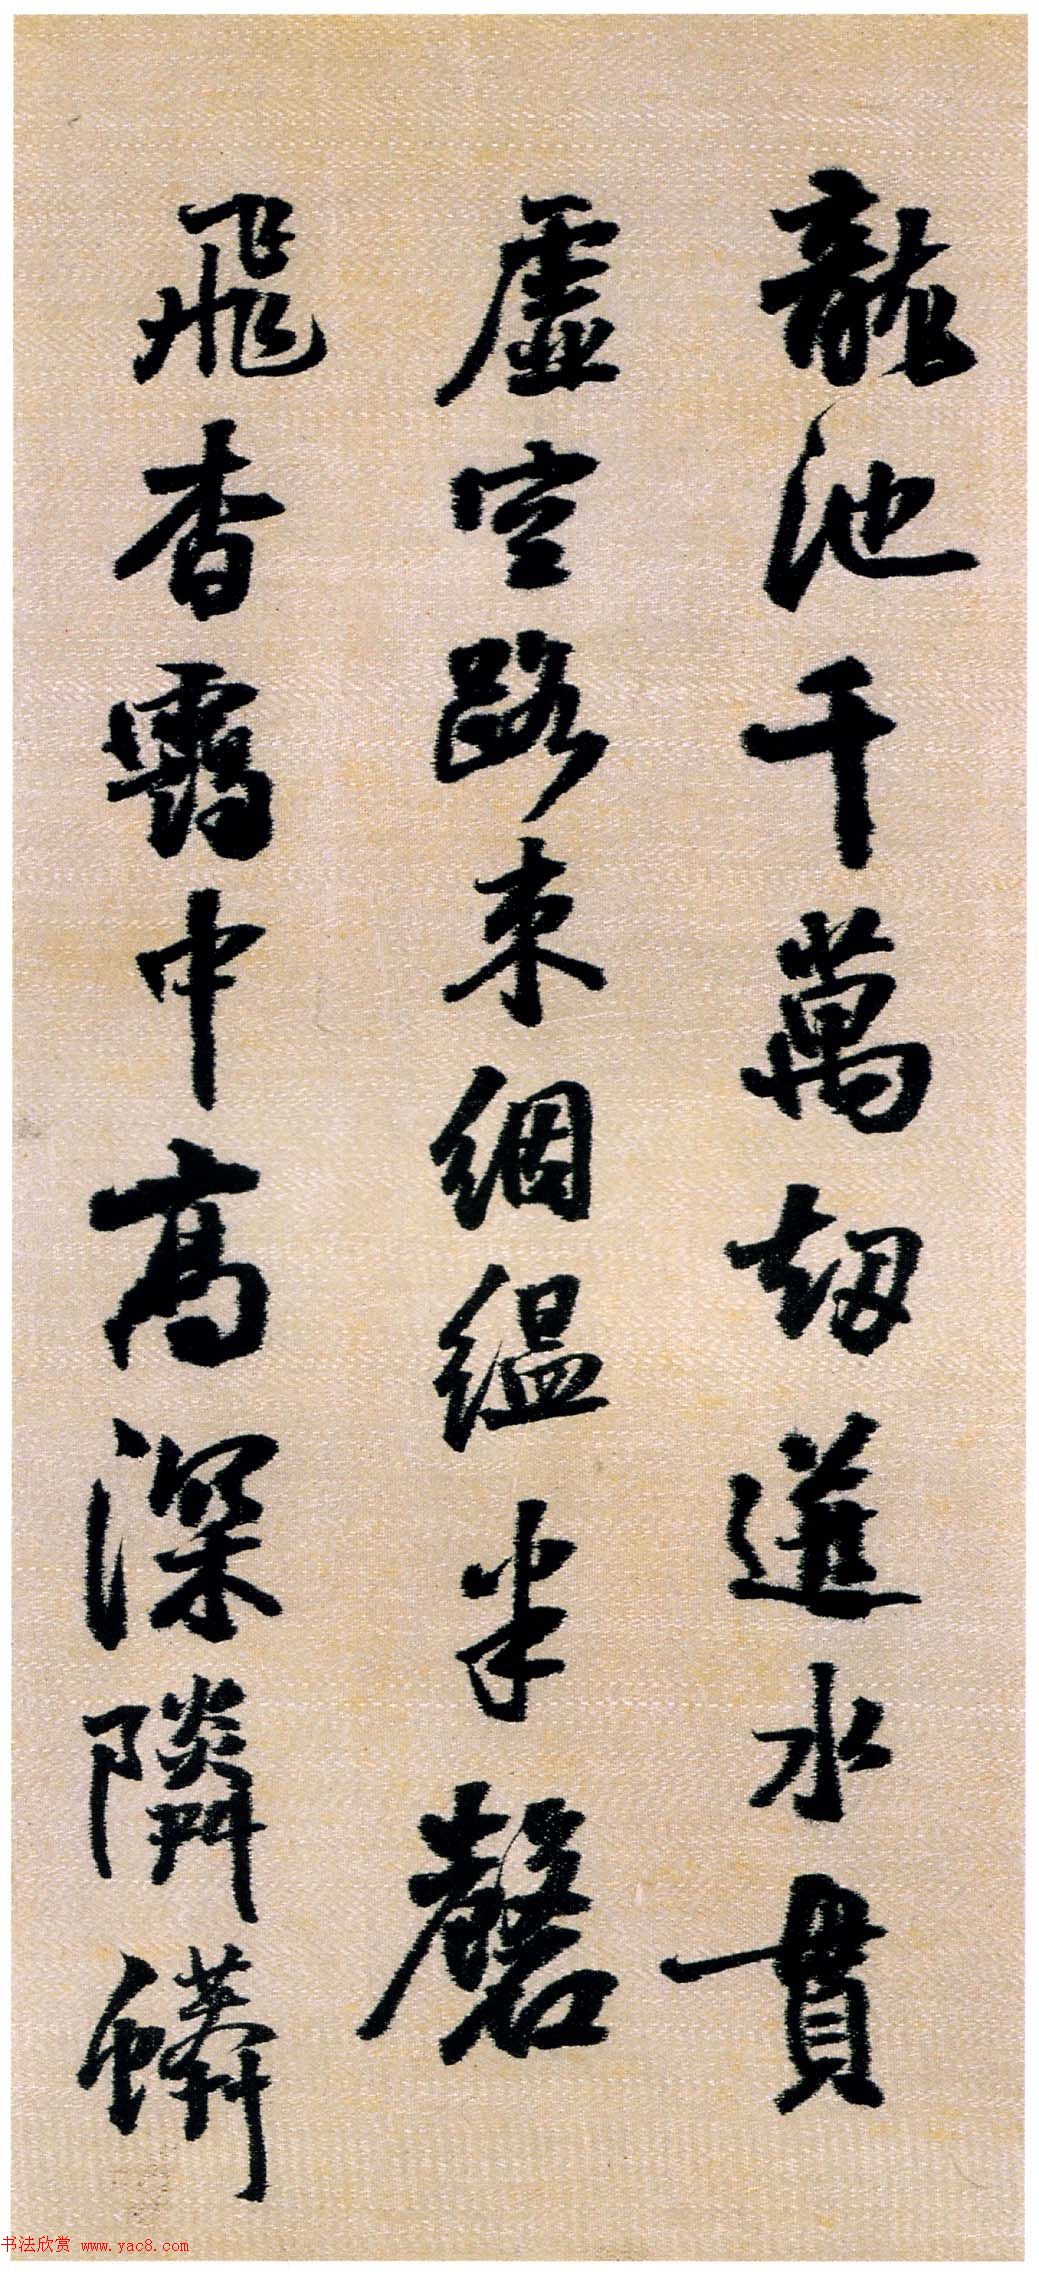 龍池千萬劫水貫
虛空路束絪緼半磬
飛香靄中高深隣鱗
书法欣赏 www.yac8.com